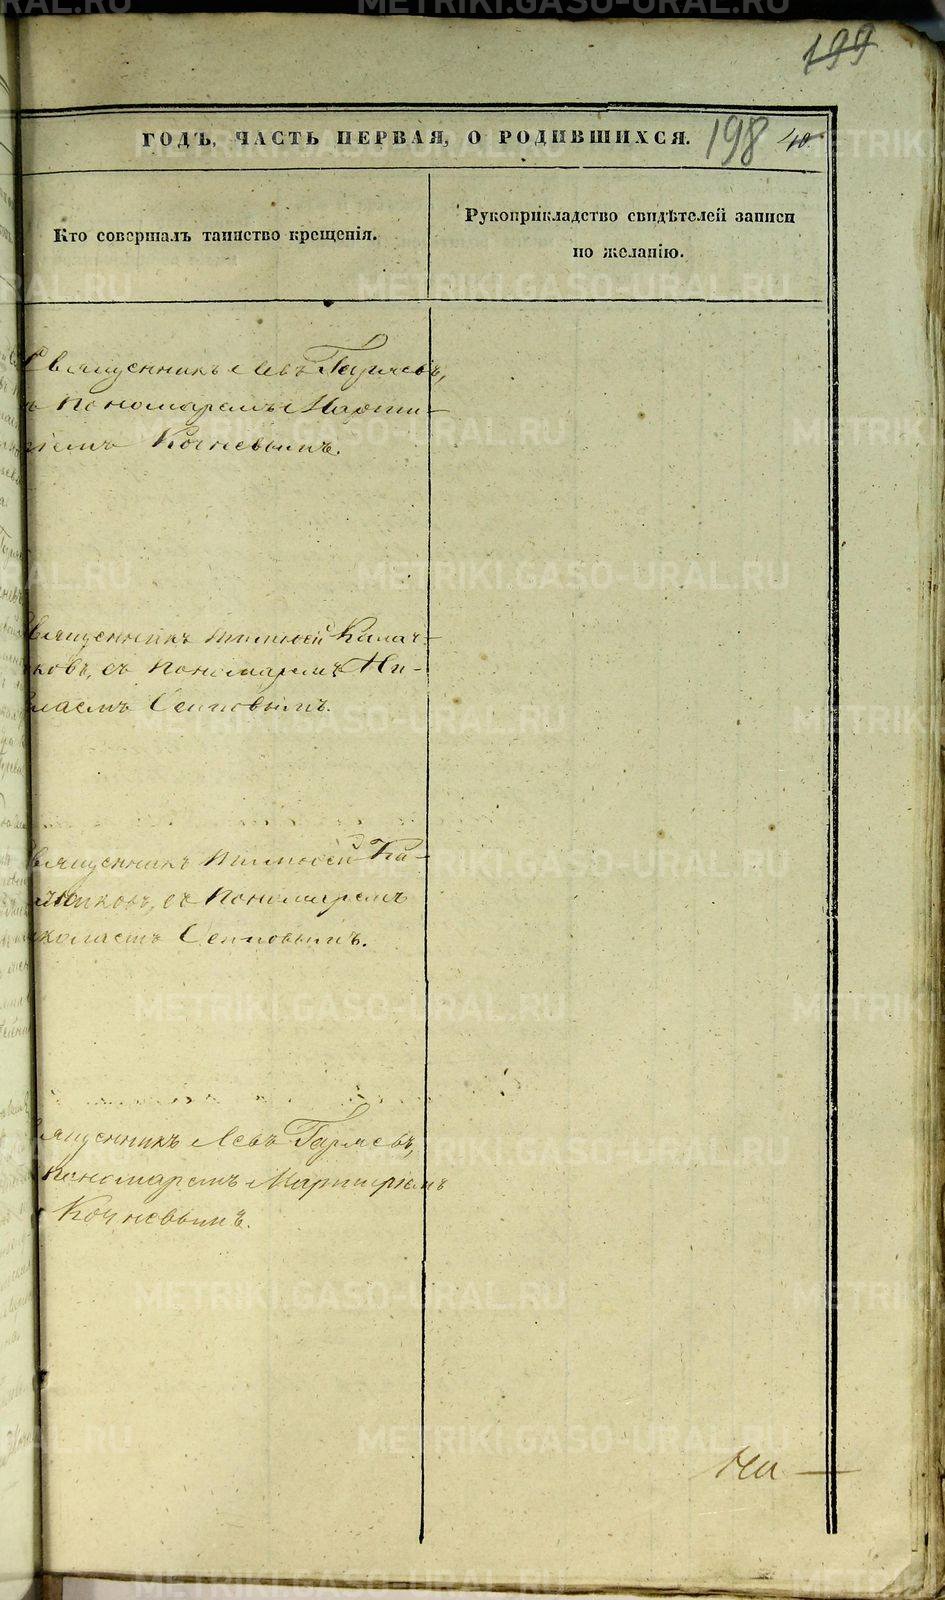 199
ГОДЪ, ЧАСТЬ ПЕРВАЯ, О РОДИВШИХСЯ. 198 40
Кто совершалъ таинство крещенія.
Рукоприкладство свидѣтелей записи
по желанію.
Священникъ Левъ
Пономаремъ Марти-
ріемъ Кочневымъ.
вященникъ Тимофей Калач-
ковъ, съ Пономаремъ Ни-
колаемъ Осиповымъ.
вященникъ Тимофей Ка-
лачиковъ, съ Пономаремъ
иколаемъ Осиповымъ.
вященникъ Левъ
Пономаремъ Мартиріемъ
Кочневымъ.
METRIKI.GASO-URAL.RU